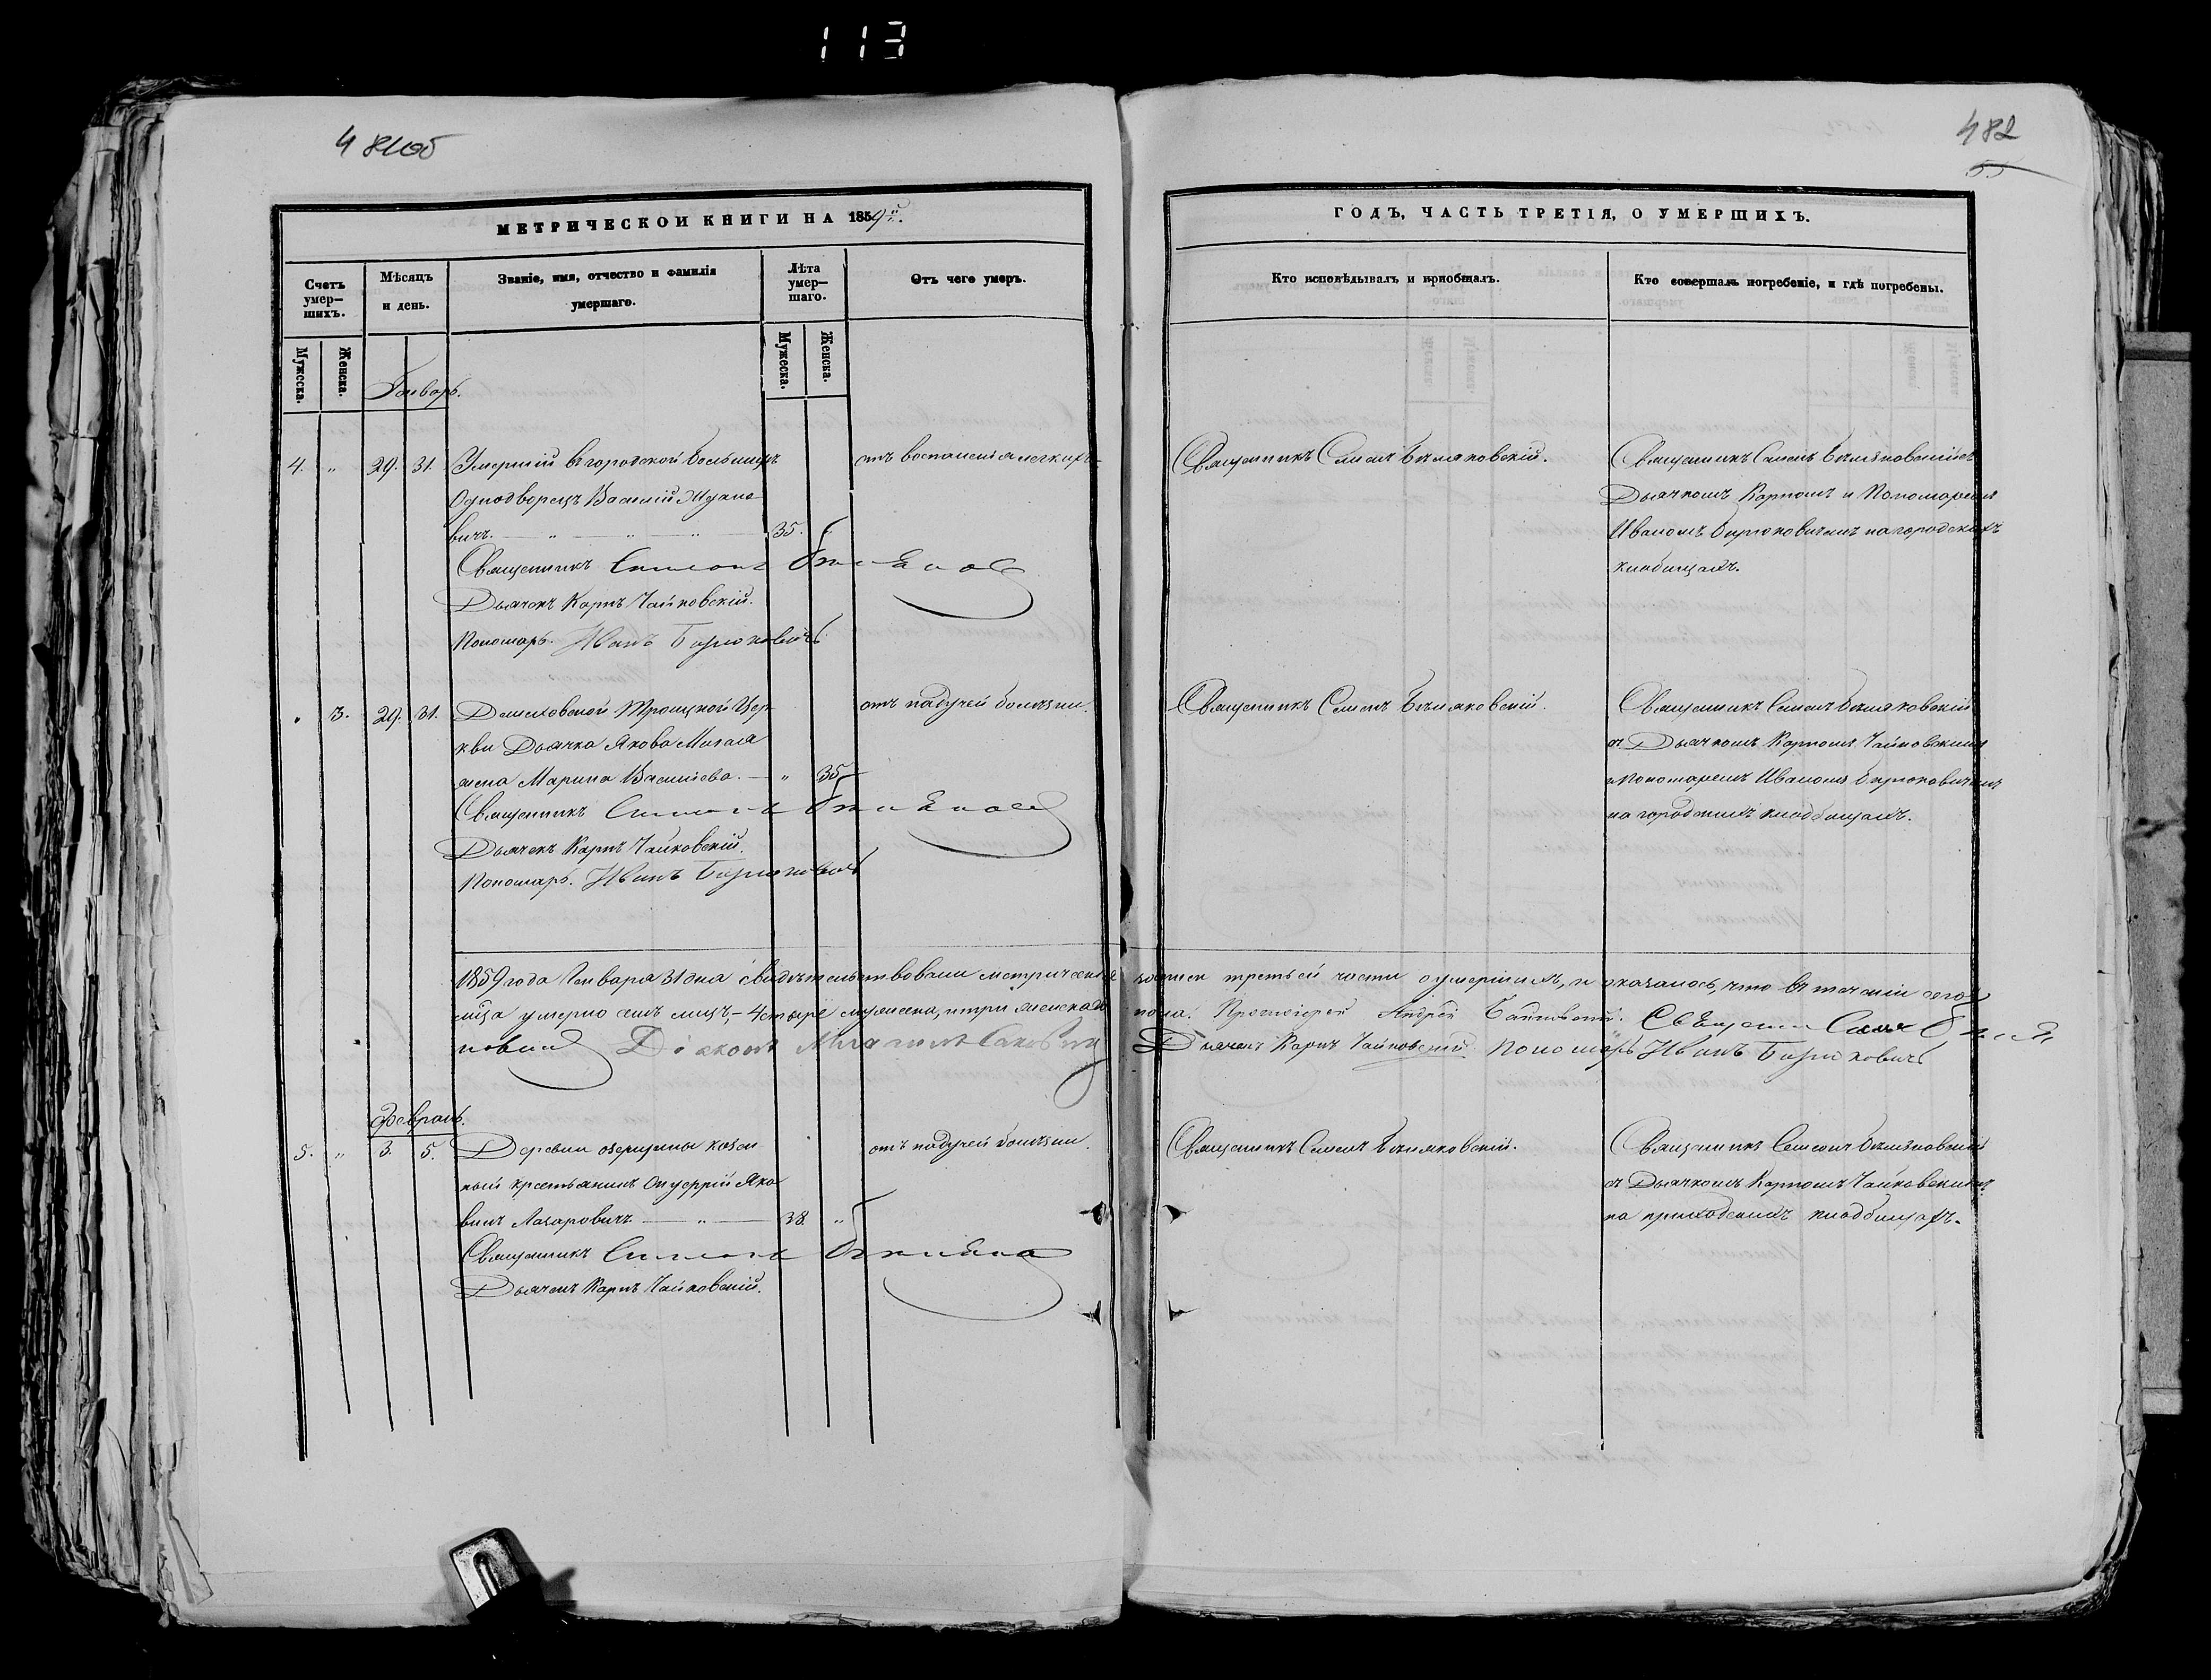 113
481об
482
55
МЕТРИЧЕСКОЙ КНИГИ НА 1859й.
ГОДЪ, ЧАСТЬ ТРЕТІЯ, О УМЕРШИХЪ.
Счетъ умер— шихъ.
Мѣсяцъ и день.
Званіе, имя, отчество и фамилія умершаго.
Лѣта умер— шаго.
Отъ чего умеръ.
Кто исповѣдывалъ и пріобщалъ.
Кто совершалъ погребеніе, и гдѣ погребены.
Мужеска.
Женска.
Мужеска.
Женска.
Генварь.
4. " 29. 31. Умершій въ городской больницѣ
Однодворецъ Василій
вичъ. " " " 35.
Священникъ Симеонъ
Дьячекъ Карпъ Чайковскій.
Пономарь Иванъ Бирюковичъ
отъ воспаленія легкихъ
Священникъ Семенъ Бѣляковскій.
Священникъ Семенъ Бѣляковскій съ
Дьячкомъ Карпомъ и Пономаремъ
Иваномъ Бирюковичемъ на городскихъ
кладбищахъ.
" 3. 29. 31. Троицкой Цер
кви Дьячка Якова
жена Марина Васильева. " 35
Священникъ Симеонъ
Дьячекъ Карпъ Чайковскій.
Пономарь. Иванъ Бирюковичъ
отъ падучей болѣзни.
Священникъ Семенъ Бѣляковскій.
Священникъ Семенъ Бѣляковскій
съ Дьячкомъ Карпомъ Чайковскимъ
и Пономаремъ Иваномъ Бирюковичемъ
на городскихъ кладбищахъ.
1859 года Генваря 31 дня свидѣтельствовали метрическія записи третьей части о умершихъ, и оказалось, что въ теченіи сего мѣ
сяца умерло семъ лицъ,— четыре мужеска, и три женска пола. Протоіерей Андрей Священникъ Симеонъ
Діаконъ Дьячекъ Карпъ Чайковскій. Пономарь Иванъ Бирюковичъ
Февраль.
5. " 3. 5. Деревни Озерщины казен
ный крестьянинъ Онуфрій Яко
вичъ Лазаровичъ " 38. "
Священникъ Симеонъ
Дьячекъ Карпъ Чайковскій.
отъ падучей болѣзни.
Священникъ Семенъ Бѣляковскій.
Священникъ Семенъ Бѣляковскій
съ Дьячкомъ Карпомъ Чайковскимъ
на приходскихъ кладбищахъ.